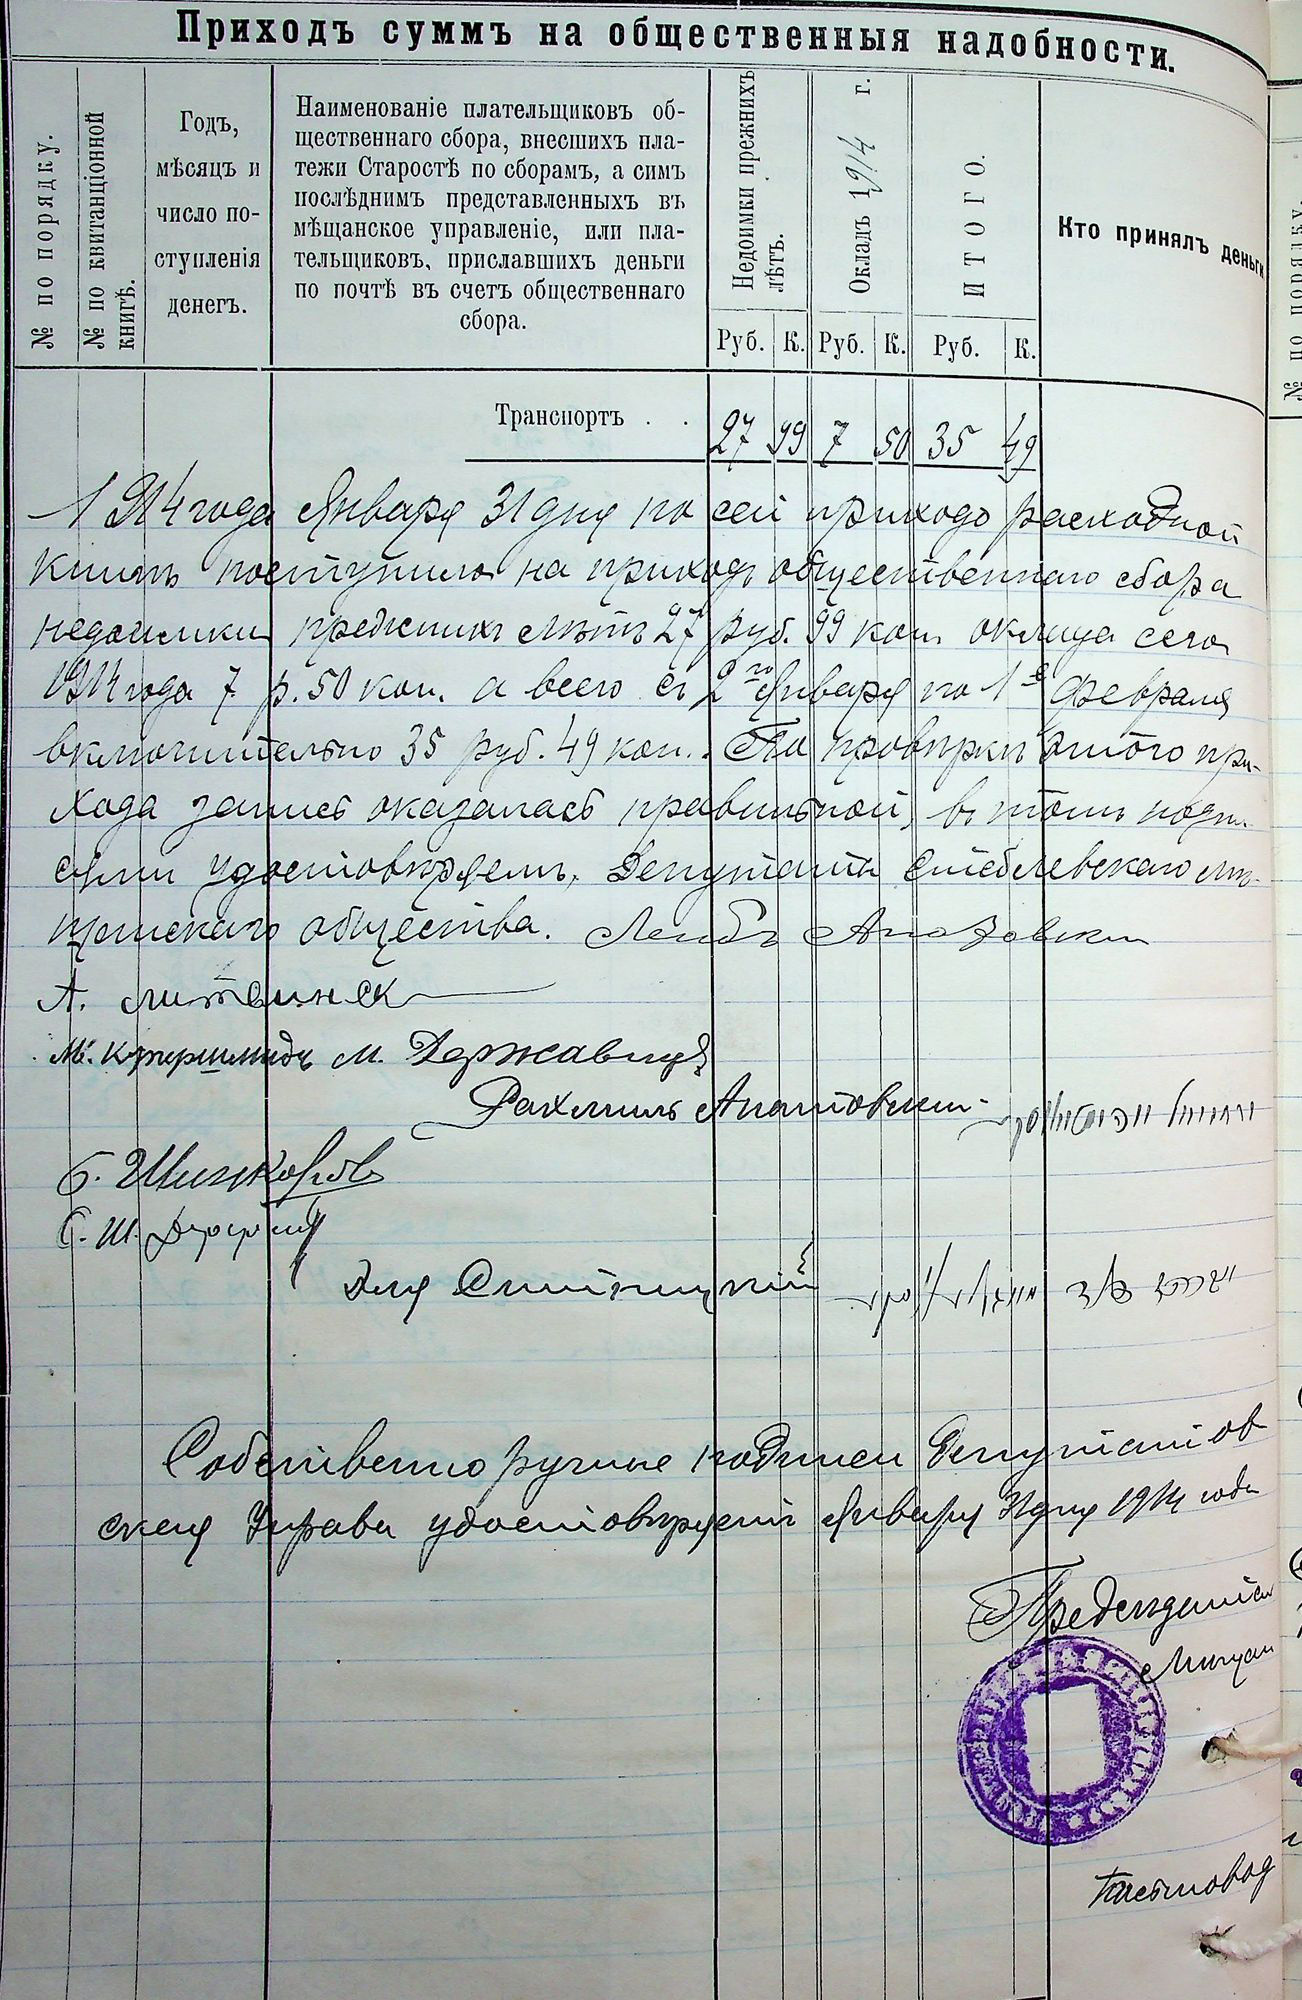 Приходъ суммъ на общественныя надобности.
№ по порядку.
№ по квитанціонной книгѣ.
Годъ,
мѣсяцъ и
число по-
ступленія
денегъ.
Наименованіе плательщиковъ об-
щественнаго сбора, внесшихъ пла-
тежи Старостѣ по сборамъ, а симъ
послѣднимъ представленныхъ въ
мѣщанское управленіе, или пла-
тельщиковъ, приславшихъ деньги
по почтѣ въ счетъ общественнаго
сбора.
Недоимки прежнихъ лѣтъ.
Окладъ 1914 г.
ИТОГО.
Кто принялъ деньги
Руб. К. Руб. К. Руб. К.
Транспортъ . . 27 99 7 50 35 49
1914 года Января 31 дня по сей приходо расходной
книгѣ поступило на приходъ общественнаго сбора
недоимки прежнихъ лѣтъ 27 руб. 99 коп. оклада сего
1914 года 7 р. 50 коп. а всего съ 2го Января по 1е Февраля
включительно 35 руб. 49 коп. По провѣркѣ этого при-
хода запись оказалась правильной, въ томъ подпи-
сями удостовѣряемъ, Депутаты Стеблевскаго мѣ-
щанскаго общества. Лейбъ
А. Литвинск
М. м. Державецъ
Рахмиль
Б. Шинкоровъ
С. Ш.
Эля Смитницкій
Собственно ручные подписи Депутатов
ская Управа удостовѣряетъ Января 31 дня 1914 года
Предсѣдатель
Мищан
Письмовод